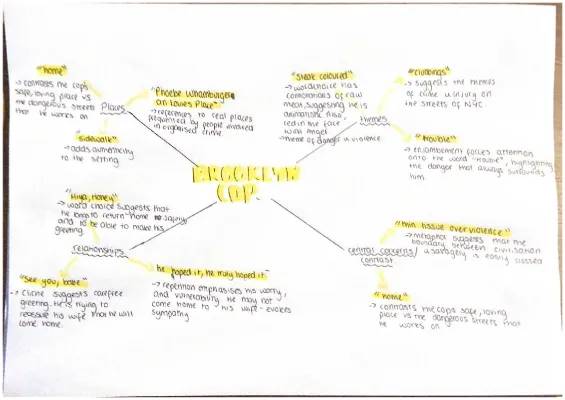 "home"
→ contrasts the cop's
safe, loving place vs
the dangerous streets
that he works on
Places
"Phoebe Whamburger
on Louie's Place"
→ references to real places
frequented by people involved
in organised crime
"sidewalk"
→ adds authenticity
to the setting
BROOKLYN
COP.
"Steak coloured"
→ word choice has
connotations of raw
meat, suggesting he is
animalistic. Also,
red in the face
with anger
→ theme of danger & violence
themes
"clubbings"
→ suggests the themes
of crime & injury on
the streets of NYC
"trouble"
→ enjambement forces attention
onto the word "trouble", highlighting
the danger that always surrounds
him.
"Hiya, Honey"
→ word choice suggests that
he longs to return home safely
and to be able to make his
greeting
relationships
"See you, babe"
→ Cliche suggests carefree
greeting. He is trying to
reassure his wife that he will
come home.
"he hoped it, he truly hoped it"
→ repetition emphasises his worry,
and vulnerability. He may not
come home to his wife - evokes
sympathy
central concerns/
contrast
"thin tissue over violence"
→ metaphor suggests that the
boundary between civilisation
& savagery is easily crossed
"home"
→ contrasts the cops safe, loving
place vs the dangerous streets that
he works on